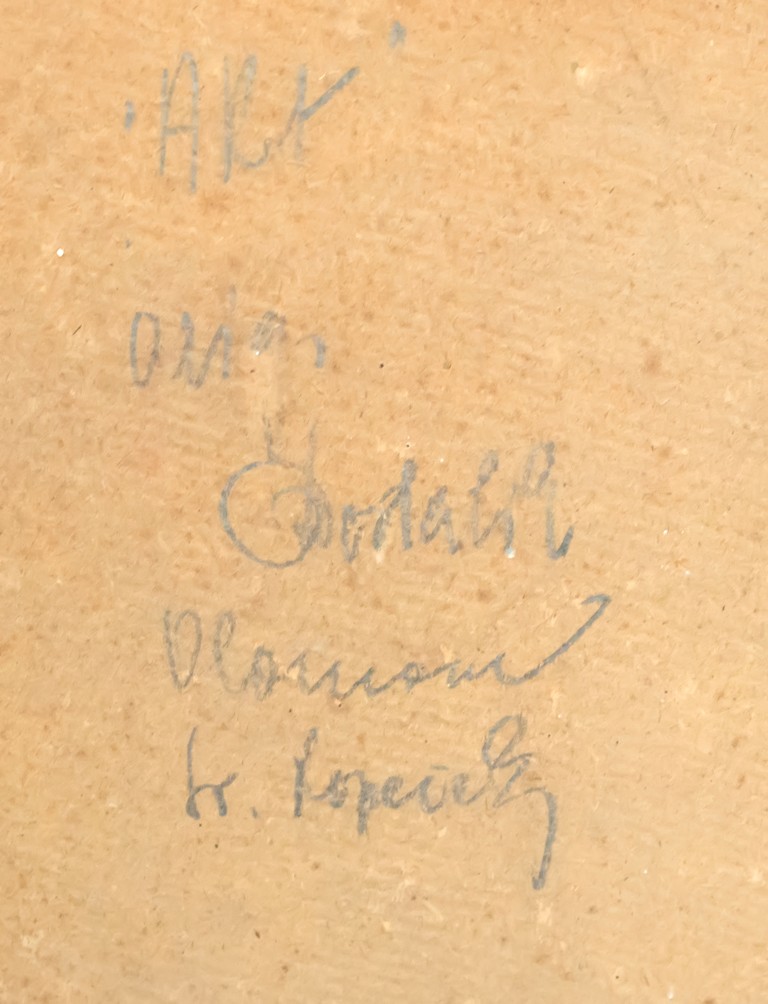 "Akt"
orig.
Olomouc
Sv. Kopeček